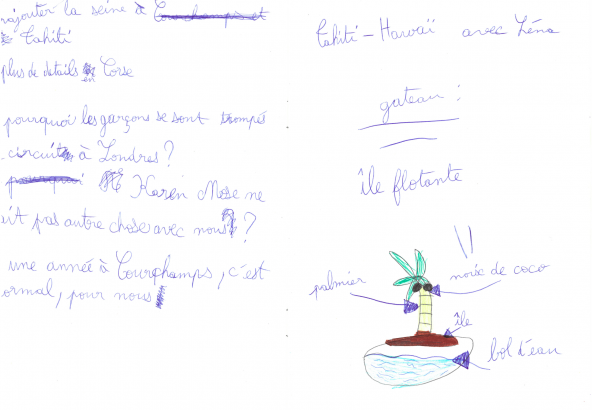 rajouter la seine à
Tahiti
plus de details en Corse
pourquoi les garçons se sont trompés
circuit à Londres ?
Karen Mose ne
it pas autre chose avec nous ?
une année à Courchamps, c'est
ormal, pour nous
Tahiti - Hawaï avec Léna
gateau :
île flotante
palmier
noix de coco
île
bol d'eau